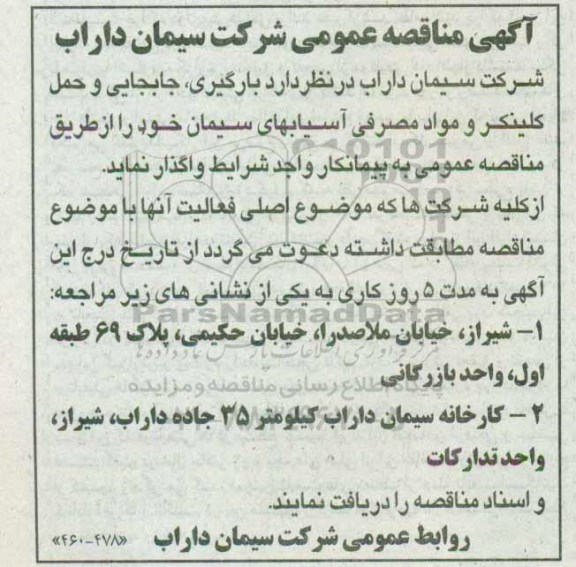 آگهی مناقصه عمومی شرکت سیمان داراب
شرکت سیمان داراب درنظردارد بارگیری، جابجایی و حمل
کلینکر و مواد مصرفی آسیابهای سیمان خود را ازطریق
مناقصه عمومی به پیمانکار واجد شرایط واگذار نماید.
ازکلیه شرکت ها که موضوع اصلی فعالیت آنها با موضوع
مناقصه مطابقت داشته دعوت می گردد از تاریخ درج این
آگهی به مدت ۵ روز کاری به یکی از نشانی های زیر مراجعه:
ParsNamadData
۱- شیراز، خیابان ملاصدرا، خیابان حکیمی، پلاک ۶۹ طبقه
اول، واحد بازرگانی
پایگاه اطلاع رسانی مناقصه و مزایده
۲ - کارخانه سیمان داراب کیلومتر ۳۵ جاده داراب، شیراز،
واحد تدارکات
و اسناد مناقصه را دریافت نمایند.
روابط عمومی شرکت سیمان داراب «۴۶۰-۴۷۸»